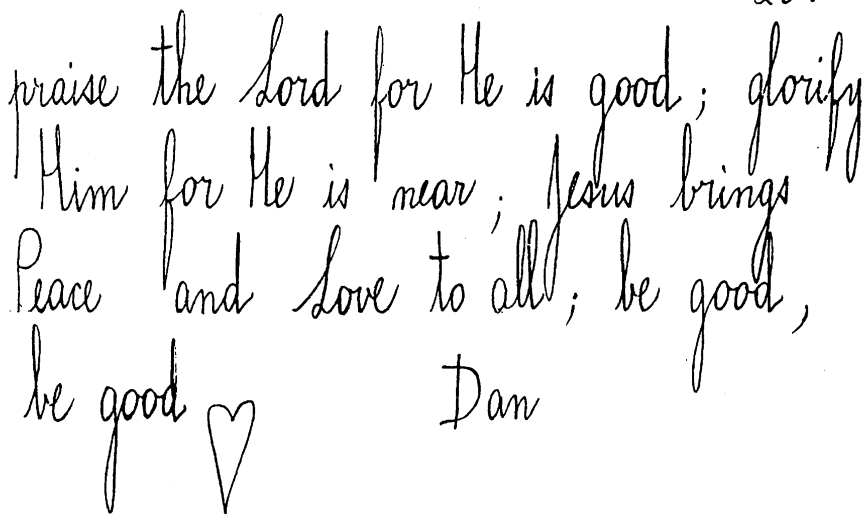 praise the Lord for He is good; glorify
Him for He is near; Jesus brings
Peace and Love to all; be good,
be good ♡ Dan